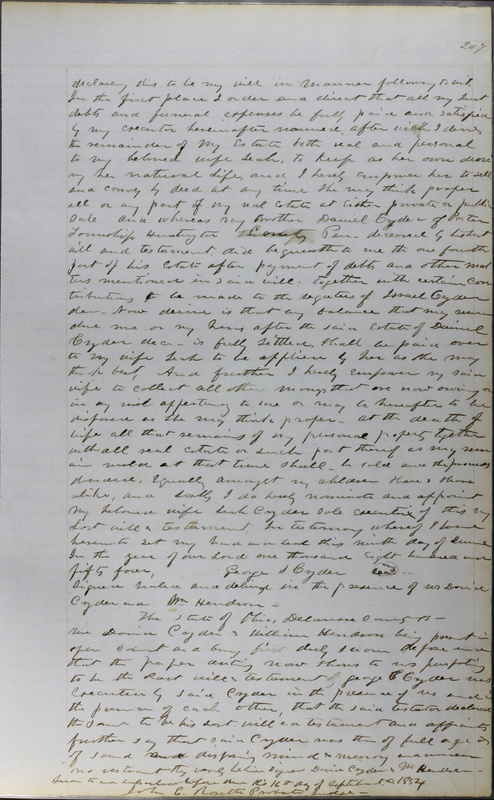 207
declaring this to be my will in manner following to wit
In the first place I order and direct that all my just
debts and funeral expenses be fully paid and satisfied
by my executor hereinafter named, after which I devise
the remainder of my Estate both real and personal
to my beloved wife Leah, to keep as her own during
her natural life, and I hereby empower her to sell
and convey by deed at any time she may think proper
all or any part of my real Estate at Either private or public
Sale. And whereas my Brother Daniel Cryder of Porter
Township Huntington County Penn deceased by his last
will and testament did bequeath to me the one fourth
part of his Estate after payment of debts and other mat
ters mentioned in said will; together with certain con
tributions to be made to the legatees of Israel Cryder
dec- Now desire is that any balance that may remain
due me or my heirs after the said Estate of Daniel
Cryder dec- is fully settled, shall be paid over
to my wife Leah to be applied by her as she may
think best. And further I hereby empower my said
wife to collect all other moneys that are now owing or
in any wise appertaining to me or may be hereafter to be
disposed as she may think proper- At the death of
wife all that remains of my personal property together
with all real Estate or such part thereof as may rem
ain unsold at that time shall be sold and the proceeds
divided, Equally amongst my children share & share
alike, and lastly I do hereby nominate and appoint
my beloved wife Leah Cryder sole executrix of this my
last will & testament. In testimony whereof I have
hereunto set my hand and seal this ninth day of June
In the year of our Lord one thousand eight hundred and
fifty four, George S Cryder seal
Signed sealed and delivered in the presence of us David
Cryder and Wm Hendren-
The State of Ohio, Delaware County ss-
We David Cryder & William Hendren being present in
open Court and being first duly sworn depose and
that the paper writing now shown to us purporting
to be the last will & testament of George S Cryder was
Executed by said Cryder in the presence of us and in
the presence of each other, that the said testator declared
the same to be his last will and testament and
further say that said Cryder was then of full age &
of sound and disposing mind & memory and under
no restraint David Cryder Wm Hendren-
Sworn to and subscribed before me this 16th day of September 1854
John C. Probate Judge-